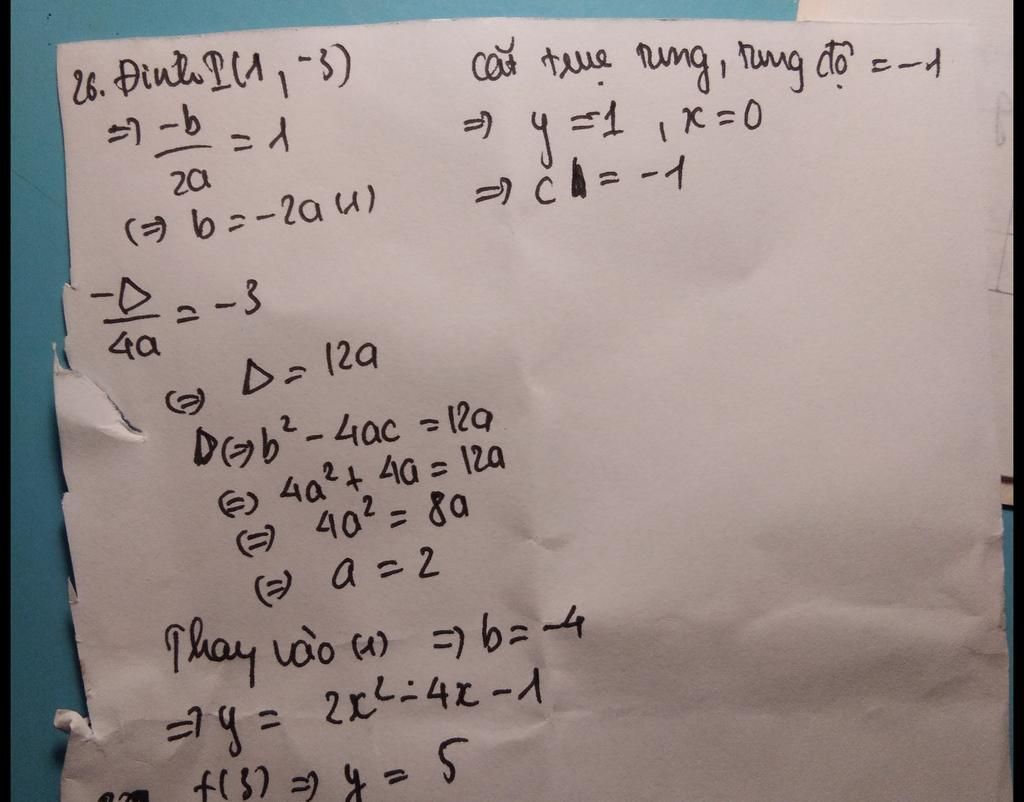 26. Đỉnh I(1, -3)
=> -b/2a = 1
<=> b = -2a (1)
-Δ/4a = -3
<=> Δ = 12a
<=> b² - 4ac = 12a
<=> 4a² + 4a = 12a
<=> 4a² = 8a
<=> a = 2
Thay vào (1) => b = -4
=> y = 2x² - 4x - 1
f(3) => y = 5
cắt trục tung, tung độ = -1
=> y = -1, x = 0
=> c = -1